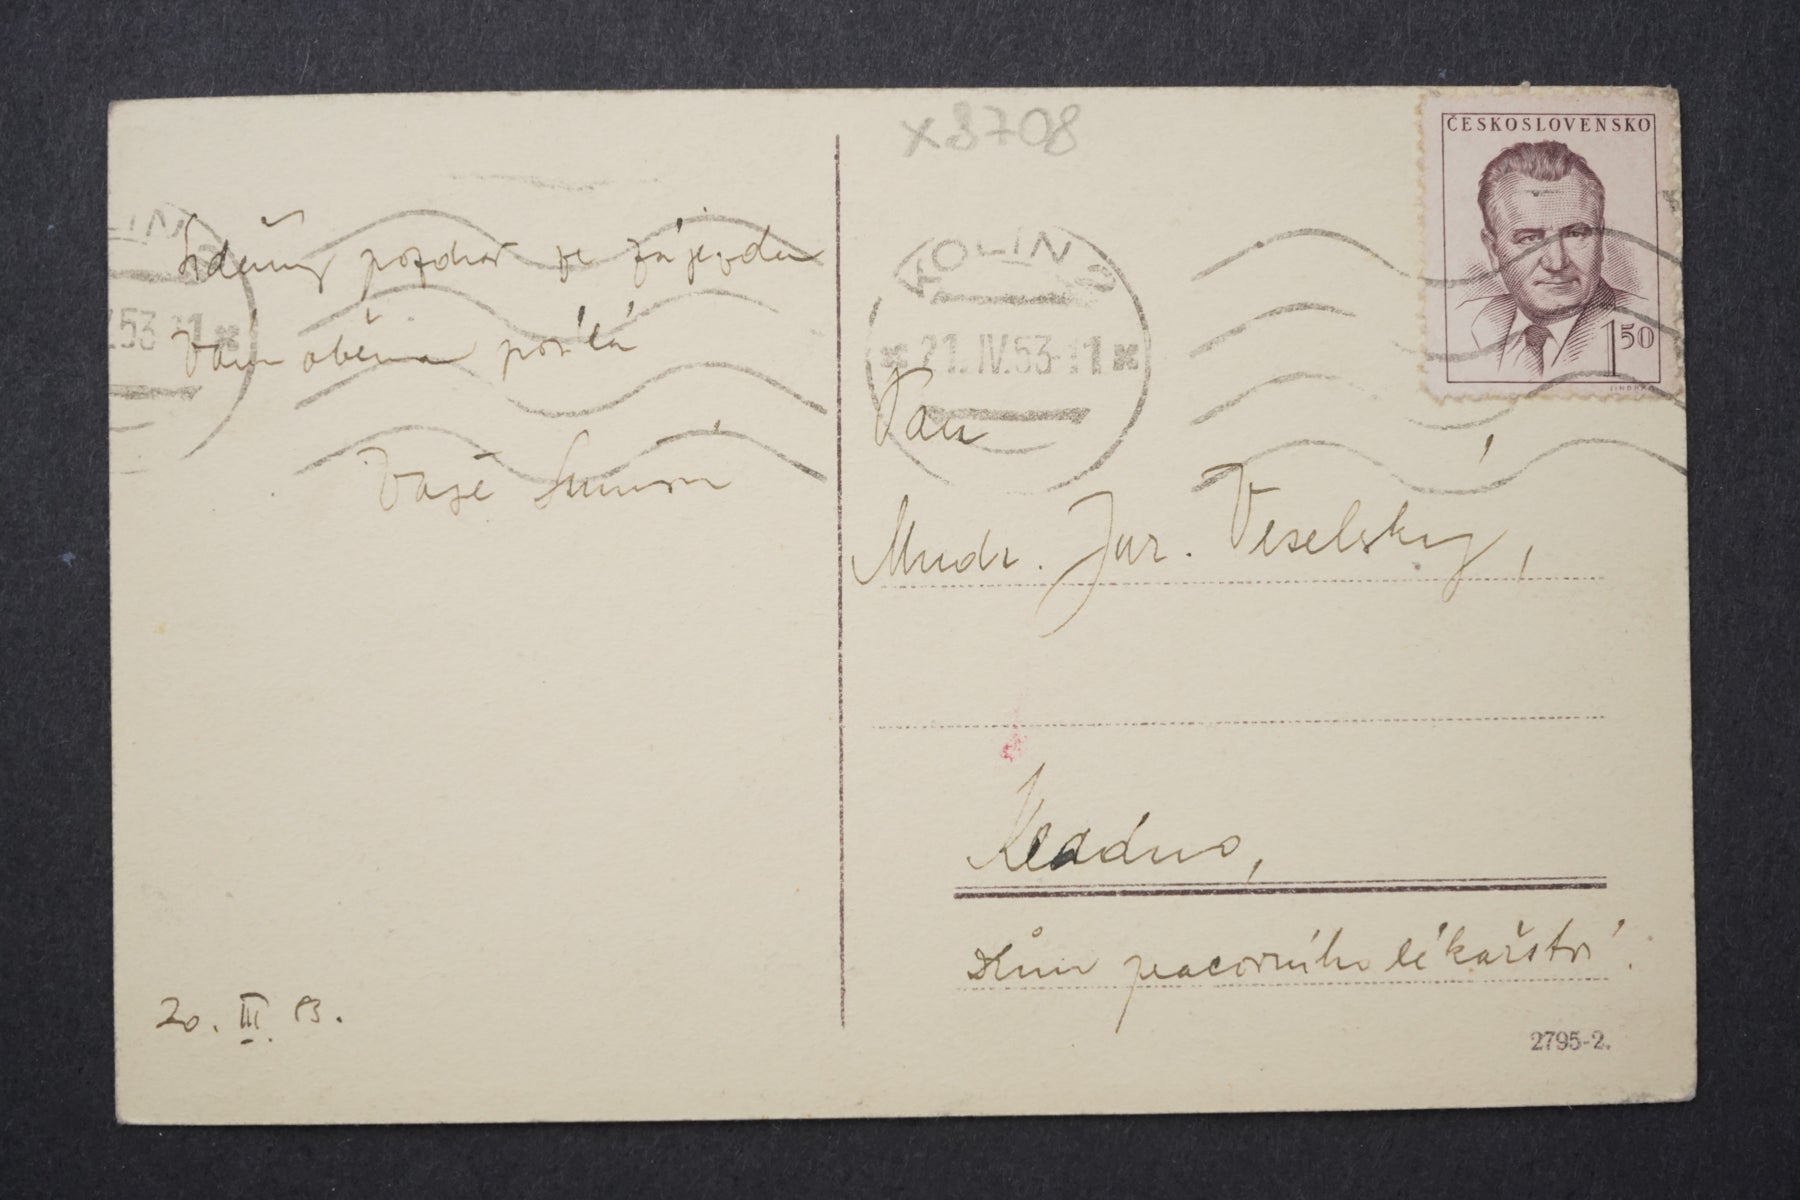 x 8708
ČESKOSLOVENSKO
1 50
KOLÍN 2
21.IV.53-11
Srdečný pozdrav ze zájezdu
Vám oběma posílá
Vaše
Pan
Mudr. Jar. Veselský,
Kladno,
dům pracovního lékařství.
20. III. 53.
2795-2.